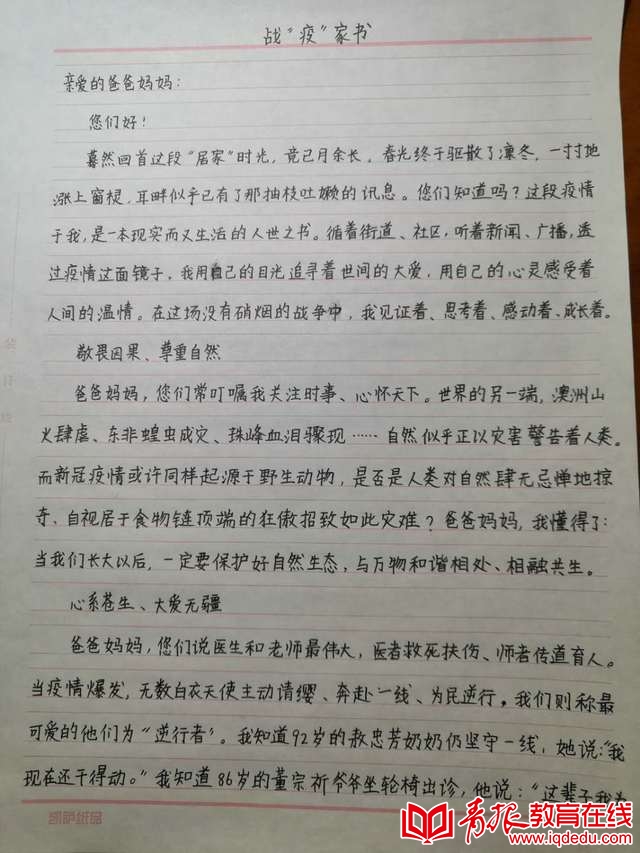 战“疫”家书
亲爱的爸爸妈妈：
您们好！
蓦然回首这段“居家”时光，竟已月余长。春光终于驱散了凛冬，一寸寸地
涨上窗棂，耳畔似乎已有了那抽枝吐嫩的讯息。您们知道吗？这段疫情
于我，是一本现实而又生活的人世之书。循着街道、社区，听着新闻、广播，透
过疫情这面镜子，我用自己的目光追寻着世间的大爱，用自己的心灵感受着
人间的温情。在这场没有硝烟的战争中，我见证着、思考着、感动着、成长着。
敬畏因果、尊重自然
爸爸妈妈，您们常叮嘱我关注时事、心怀天下。世界的另一端，澳洲山
火肆虐、东非蝗虫成灾、珠峰血泪骤现……自然似乎正以灾害警告着人类。
而新冠疫情或许同样起源于野生动物，是否是人类对自然肆无忌惮地掠
夺、自视居于食物链顶端的狂傲招致如此灾难？爸爸妈妈，我懂得了：
当我们长大以后，一定要保护好自然生态，与万物和谐相处、相融共生。
心系苍生、大爱无疆
爸爸妈妈，您们说医生和老师最伟大，医者救死扶伤、师者传道育人。
当疫情爆发，无数白衣天使主动请缨、奔赴一线、为民逆行。我们则称最
可爱的他们为“逆行者”。我知道92岁的敖忠芳奶奶仍坚守一线，她说：“我
现在还干得动。”我知道86岁的董宗祈爷爷坐轮椅出诊，他说：“这辈子我为
装订线
凯萨纸品
青报教育在线
www.iqdedu.com